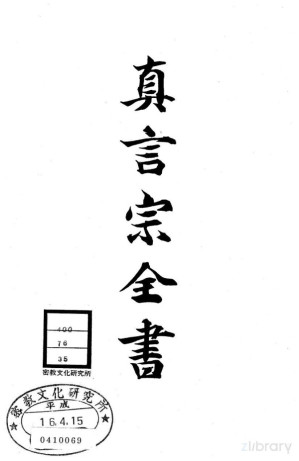 真言宗全書
400
76
35
密教文化研究所
密教文化研究所
平成
16.4.15
0410069
zlibrary